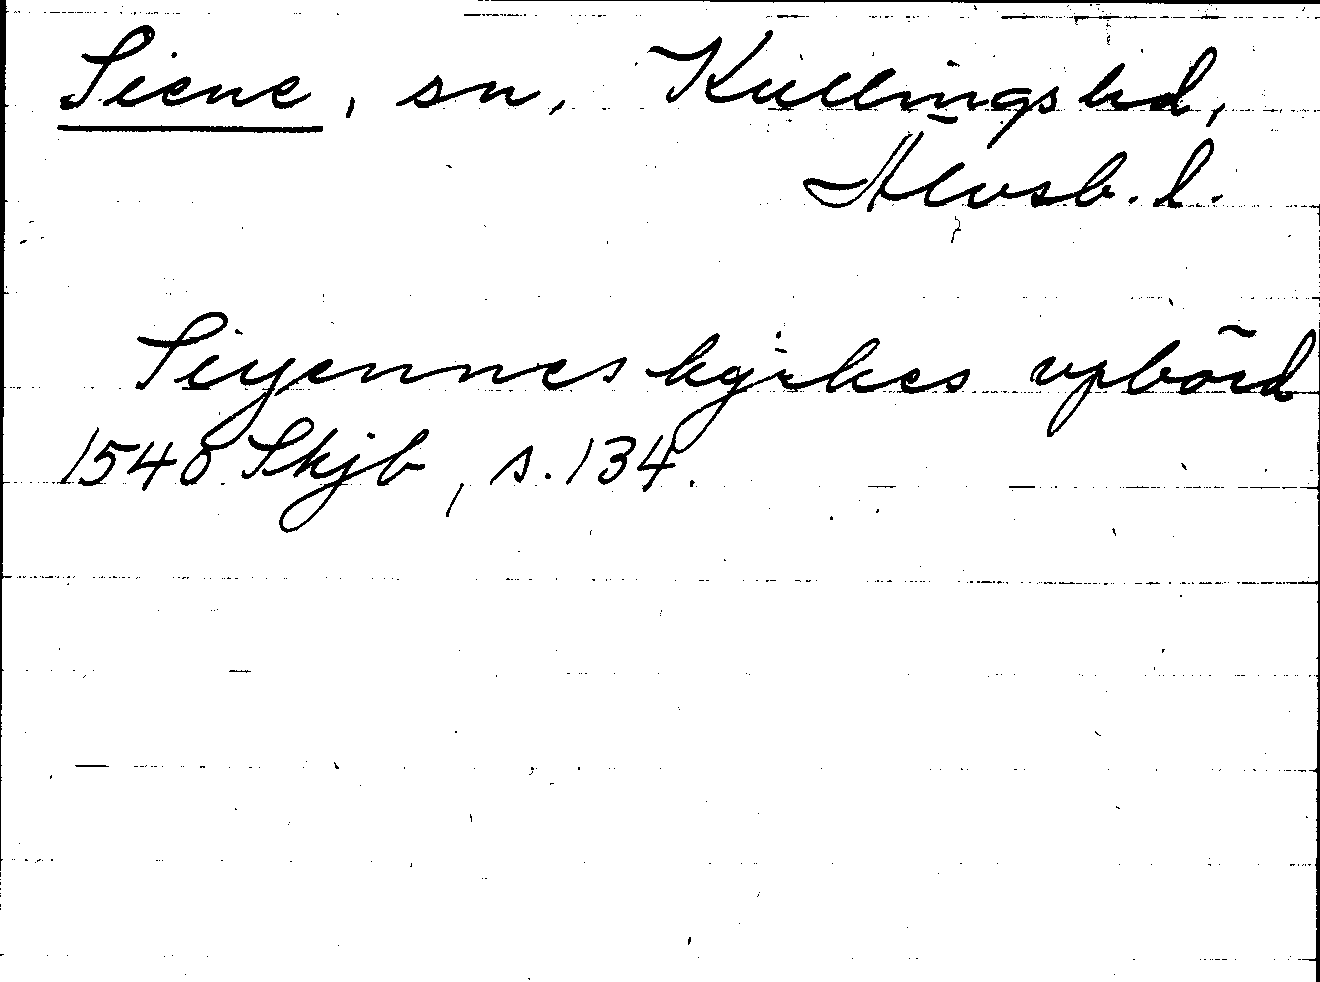 Siene, sn, Kullings hd,
Älvsb. l.
Siyennes kyrkes vpbörd
1540 Skjb, s. 134.